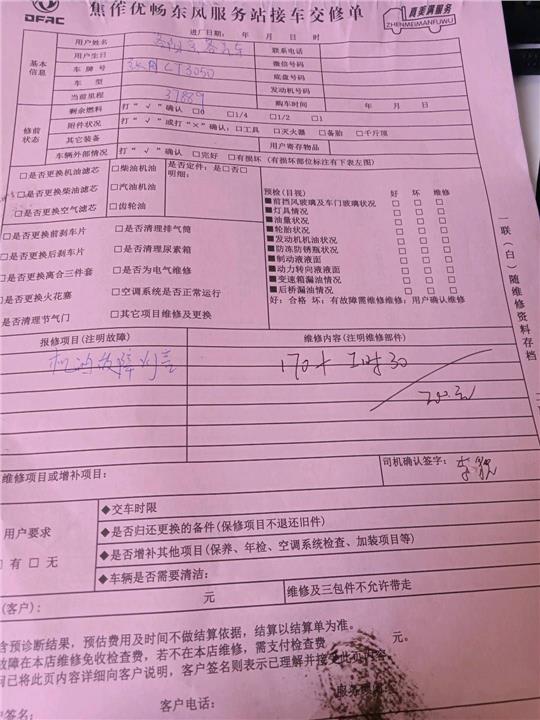 DFAC
焦作优畅东风服务站接车交修单
真美满服务
ZHENMEIMANFUWU
进厂日期： 年 月 日 时
基本信息
用户姓名
联系电话
用户生日
微信号码
车牌号 CT3050
底盘号码
车型
发动机号码
当前里程 37889
购车时间 年 月 日
修前状态
剩余燃料 打“√”确认 □0 □1/4 □1/2 □1
附件状况 打“√”或打“×”确认：□工具 □灭火器 □备胎 □千斤顶
其它装备
用户寄存物品
车辆外部情况 打“√”确认 □完好 □有损坏（有损坏部位标注有下表左图）
□是否更换机油滤芯 □柴油机油 是否定件：是□否□
□是否更换柴油滤芯 □汽油机油 明细：
□是否更换空气滤芯 □齿轮油
□是否更换前刹车片 □是否清理排气筒
□是否更换后刹车片 □是否清理尿素箱
□是否更换离合三件套 □是否为电气维修
□是否更换火花塞 □空调系统是否正常运行
是否清理节气门 □其它项目维修及更换
预检(目视) 好 坏 维修
■前挡风玻璃及车门玻璃状况 □ □ □
■灯具情况 □ □ □
■油量状况 □ □ □
■轮胎状况 □ □ □
■发动机机油状况 □ □ □
■防冻防锈瓶状况 □ □ □
■制动液液面 □ □ □
■动力转向液液面 □ □ □
■变速箱漏油情况 □ □ □
■后桥漏油情况 □ □ □
好：合格 坏：有故障需维修维修：用户确认维修
一联（白）随维修资料存档
报修项目(注明故障) 维修内容(注明维修部件)
机油故障灯亮
维修项目或增补项目：
司机确认签字：
用户要求
□有 □无
◆交车时限
◆是否归还更换的备件(保修项目不退还旧件)
◆是否增补其他项目(保养、年检、空调系统检查、加装项目等)
◆车辆是否需要清洁：
(客户)： 元 维修及三包件不允许带走
含预诊断结果，预估费用及时间不做结算依据，结算以结算单为准。
故障在本店维修免收检查费，若不在本店维修，需支付检查费 元。
已将此页内容详细向客户说明，客户签名则表示已理解并接受此页内容。
户签名： 客户电话：